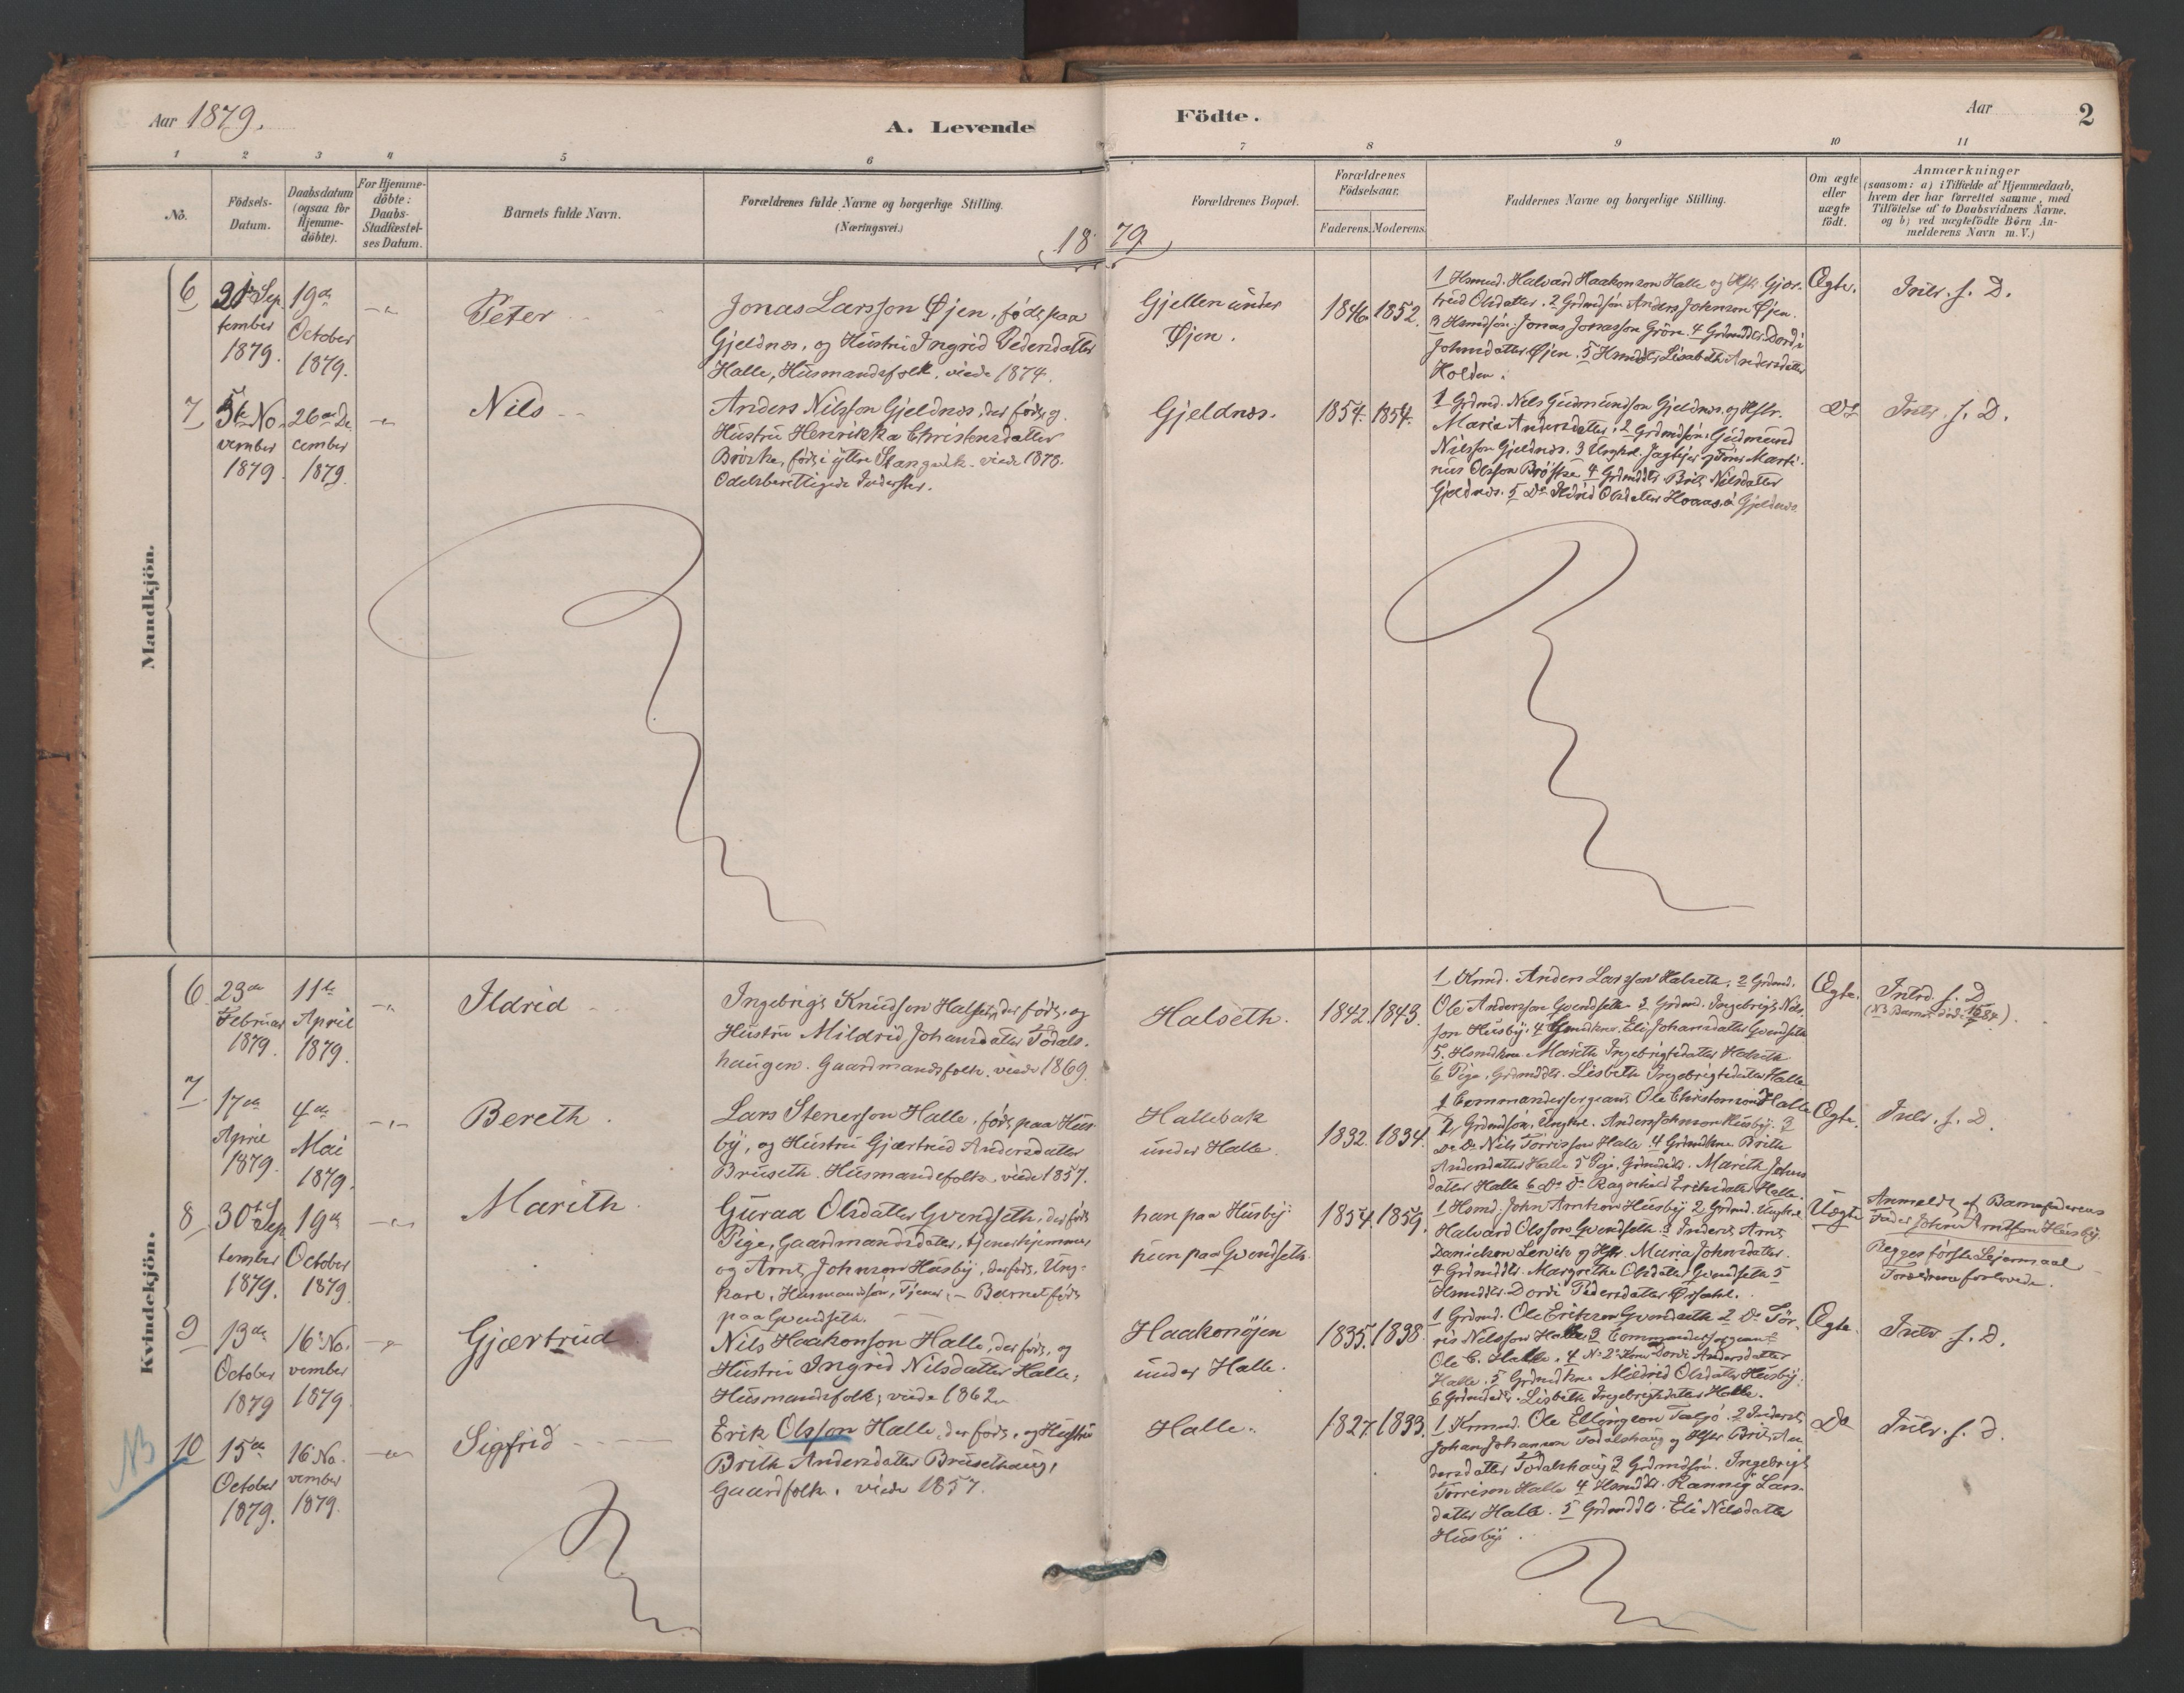 Aar 1879.
A. Levende Födte.
Aar
2
1 2 3 4 5 6 7 8 9 10 11
No.
Födsels-
Datum.
Daabsdatum
(ogsaa for
Hjemme-
döbte).
For Hjemme-
döbte:
Daabs-
Stadfæstel-
ses Datum.
Barnets fulde Navn.
Forældrenes fulde Navne og borgerlige Stilling.
(Næringsvei.)
Forældrenes Bopæl.
Forældrenes
Födselsaar.
Faderens. Moderens.
Faddernes Navne og borgerlige Stilling.
Om ægte
eller
uægte
födt.
Anmærkninger
(saasom: a) i Tilfælde af Hjemmedaab,
hvem der har forrettet samme, med
Tilföielse af to Daabsvidners Navne.
og b) ved uægtefödte Börn An-
melderens Navn m. V.)
1879
Mandkjön.
6
21 Sep
tember
1879.
19de
October
1879.
Peter
Jonas Larsson Øjen, föds paa
Gjeldnæs, og Hustru Ingrid Pedersdatter
Halle, Husmandsfolk. viede 1874.
Gjellen under
Øjen.
1846. 1852.
1 Hsmd. Halvard Haakonson Halle og Hstr. Gjær-
trud Olsdatter. 2 Grdmdsön Anders Johnson Øjen.
3 Hsmdsön. Jonas Jonasson Grön. 4 Grdmddtr. Dordi
Johnsdatter Øjen. 5 Hsmddtr Lisabeth Andersdatter
Holden.
Ægte.
Intr. f. D.
7
5te No
vember
1879.
26de De
cember
1879.
Nils
Anders Nilsson Gjeldnæs, der föds, og
Hustru Henrikka Christensdatter
Bröske, föds i yttre Stangvik. viede 1878.
Odelsberettigede Inderster.
Gjeldnæs.
1854. 1854.
1 Grdmd. Nels Gudmundson Gjeldnæs og Hstr.
Maria Andersdatter. 2 Grdmdsön Gudmund
Nilsson Gjeldnæs. 3 Ungkrl. Jagtejer Marti-
nus Olsson Bröske. 4 Grdmddtr Brit Nilsdatter
Gjeldnæs. 5 Do Ildrid Olsdatter Hoaas à Gjeldnæs.
Do
Intr. f. D.
Kvindekjön.
6
23de
Februar
1879.
11te
April
1879.
Ildrid
Ingebrigt Knudson Halseth, der föds, og
Hustru Mildrid Johansdatter Todals-
haugen. Gaardmandsfolk. viede 1869.
Halseth.
1842. 1843.
1 Kmd. Anders Larsson Halseth. 2 Grdmd.
Ole Andersson Qvendseth 3 Grdmd. Ingebrigt Nils-
son Husby. 4 Eli Johansdatter Qvendseth
5. Hsmdkne Marith Ingebrigtsdatter Halseth
6 Pige, Grdmddtr. Lisbeth Ingebrigtsdatter Halle
Ægte.
Intrd. f. D
7
17de
April
1879.
4de
Mai
1879.
Bereth
Lars Stenerson Halle, föds paa Hus-
by, og Hustru Gjærtrud Andersdatter
Bruseth. Husmandsfolk. viede 1857.
Hallebak
under Halle.
1832. 1834.
1 Commandersergeant Ole Christenson Halle
2 Grdmdsön, Ungkre. Anders Johnson Husby. 3
Do Do Nils Torrisson Halle 4 Grdmdkne Brith
Andersdatter Halle 5 Pige, Grdmddtr. Marith Johns
datter Halle 6 Do Do Ragnhild Eriksdatter Halle.
Ægte.
Intr. f. D.
8
30te Sep
tember
1879.
19de
October
1879
Marith
Guraa Olsdatter Qvendseth, der föds
Pige, Gaardmandsdatter, tjener hjemme,
og Arnt Johnson Husby, der föds, Ung-
karl, Husmandsön, Tjener. – Barnet föds
paa Qvendseth.
han paa Husby.
hun paa Qvendseth.
1854. 1859.
1 Hsmd. John Arntson Husby 2 Grdmd. Ungkrl
Halvard Olsson Qvendseth. 3 Inderst Arnt
Danielson Lervik og Hstr. Maria Johnsdatter.
4 Grdmddtr. Margrethe Olsdatter Qvendseth 5
Hsmddtr. Dordi Pedersdatter Ørsahl.
Uægte
Anmeldt af Barnefaderens
Fader John Arntson Husby.
Begges förste Lejermaal
Forældrene forlovede.
9
13de
October
1879
16de No.
vember
1879.
Gjærtrud
Nils Haakonson Halle, der föds, og
Hustru Ingrid Nilsdatter Halle,
Husmandsfolk; viede 1862.
Haakonöjen
under Halle.
1835. 1838.
1 Grdmd. Ole Erikson Qvendseth 2 Do Tör-
ris Nilsson Halle 3 Commandersergeant
Ole C. Halle. 4 Dordi Andersdatter
Halle. 5 Grdmdkne Mildrid Olsdatter Husby.
6 Grdmddtr. Lisbeth Ingebrigtsdatter Halle.
Ægte.
Intr. f. D.
NB
10
15de
October
1879.
16de No.
vember
1879.
Sigfrid
Erik Olsson Halle, der föds, og Hustru
Brith Andersdatter Brusethaug,
Gaardfolk. viede 1857.
Halle.
1827. 1833.
1 Kmd. Ole Ellingson Talgö. 2 Inderst
Johan Johanson Todalshaug og Hstr Brit An
dersdatter Todalshaug 3 Grdmdsön. Ingebrigt
Torrison Halle 4 Hsmddtr. Rannig Lars-
datter Halle. 5 Grdmddtr. Eli Nilsdatter
Husby.
Do
Intr. f. D.